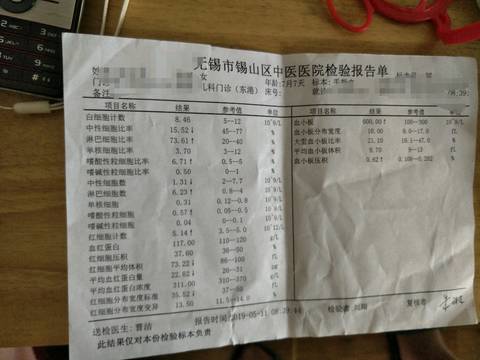 无锡市锡山区中医医院检验报告单
女 年龄:7月7天
儿科门诊（东港） 床号:
备注: 08:39:
项目名称 结果 参考值 单位 项目名称 结果 参考值 单位
白细胞计数 8.46 5--12 10^9/L 血小板 600.00↑ 100--300 10^9/L
中性细胞比率 15.52↓ 45--77 % 血小板分布宽度 fL
淋巴细胞比率 73.61↑ 20--40 % 大型血小板比率 %
单核细胞比率 3.70 3--12 % 平均血小板体积 fL
嗜酸性粒细胞比率 6.71↑ 0.5--5 % 血小板压积 %
嗜碱性粒细胞比率 0.50 0--1 %
中性细胞数 1.31↓ 2--7.7 10^9/L
淋巴细胞数 6.23↑ 0.8--4 10^9/L
单核细胞 0.31 0.12--0.8 10^9/L
嗜酸性粒细胞 0.57↑ 10^9/L
嗜碱性粒细胞 0.04 0--0.1 10^9/L
红细胞计数 5.14↑ 3.5--5.0 10^12/L
血红蛋白 117.00 110--120 g/L
红细胞压积 37.60 36--50 %
红细胞平均体积 73.22↓ 86--100 fL
平均血红蛋白量 22.82↓ 26--31
平均血红蛋白浓度 311.00 g/L
红细胞分布宽度标准 35.52↓ fL
红细胞分布宽度变异 13.50 11.5--14.0 %
送检医生: 曹洁 报告时间:2019-05-11 08:39:44 检验者: 复核者:
此结果仅对本份检验标本负责